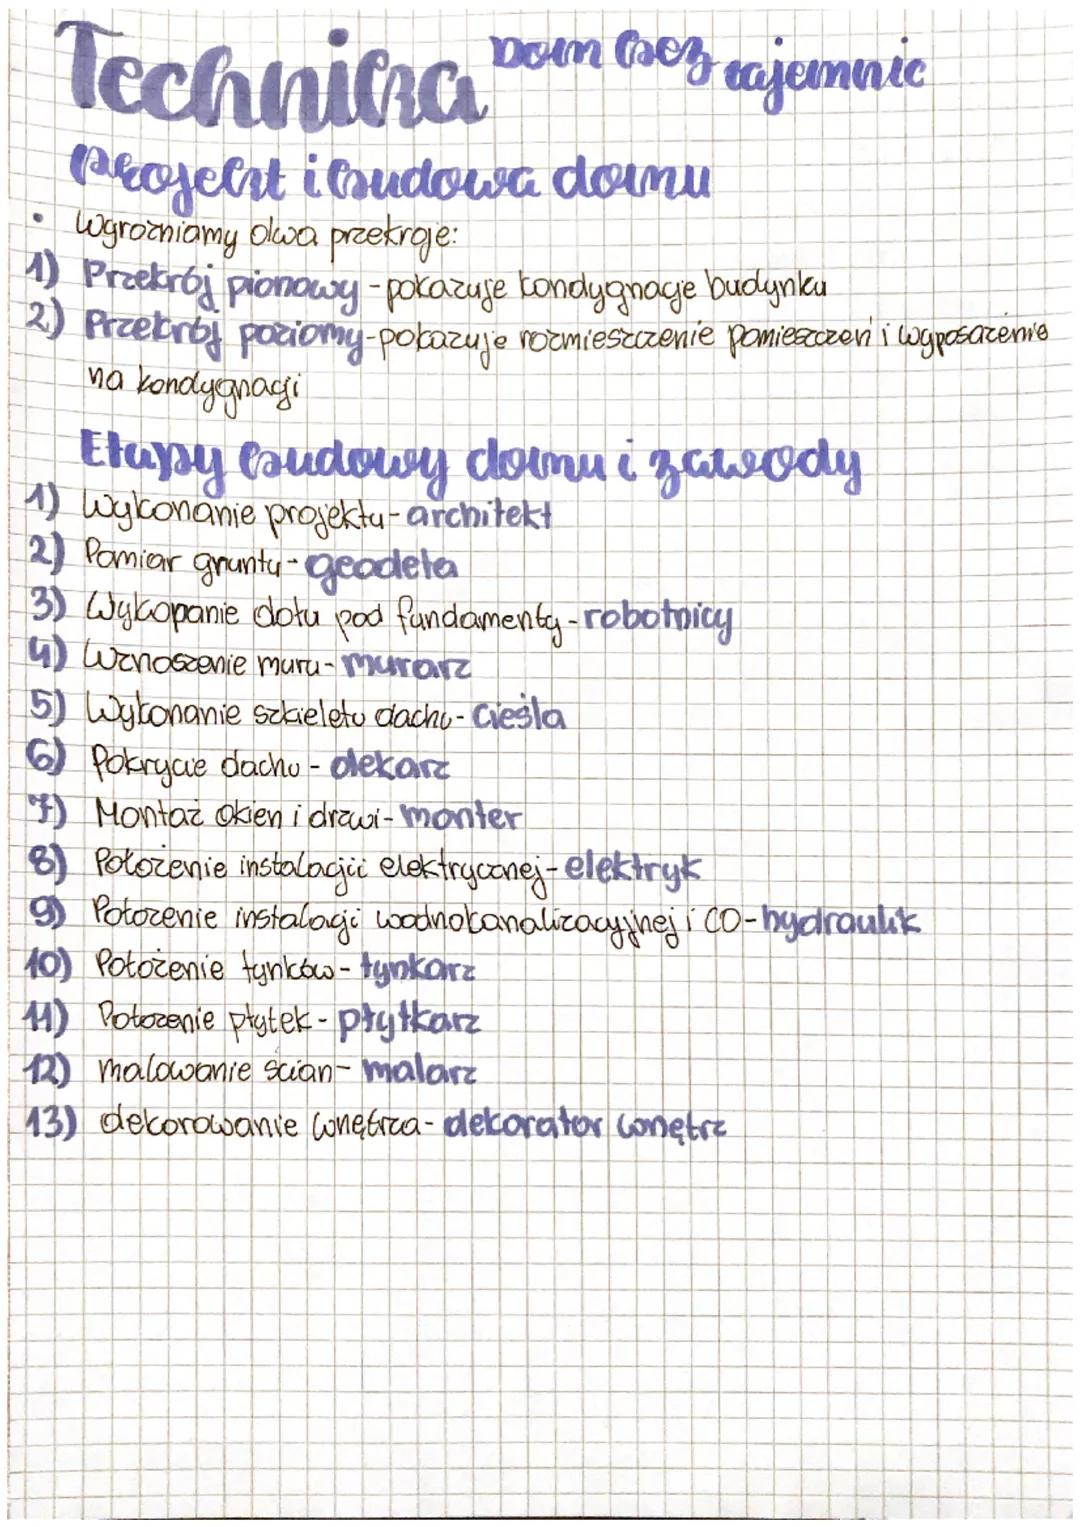 Technika Dom bez tajemnic
Projekt i budowa domu
• Wyrozniamy dwa przekroje:
1) Przekrój pionowy - pokazuje kondygnacje budynku
2) Przekrój poziomy - pokazuje rozmieszczenie pomieszczeń i wyposażenie
na kondygnacji
Etapy budowy domu i zawody
1) Wykonanie projektu - architekt
2) Pomiar gruntu - geodeta
3) Wykopanie dołu pod fundamenty - robotnicy
4) Wznoszenie muru - murarz
5) Wykonanie szkieletu dachu - cieśla
6) Pokrycie dachu - dekarz
7) Montaż okien i drzwi - monter
8) Położenie instalacjii elektrycznej - elektryk
9) Położenie instalacji wodnokanalizacyjnej i CO - hydraulik
10) Położenie tynków - tynkarz
11) Położenie płytek - płytkarz
12) malowanie ścian - malarz
13) dekorowanie wnętrza - dekorator wnętrz